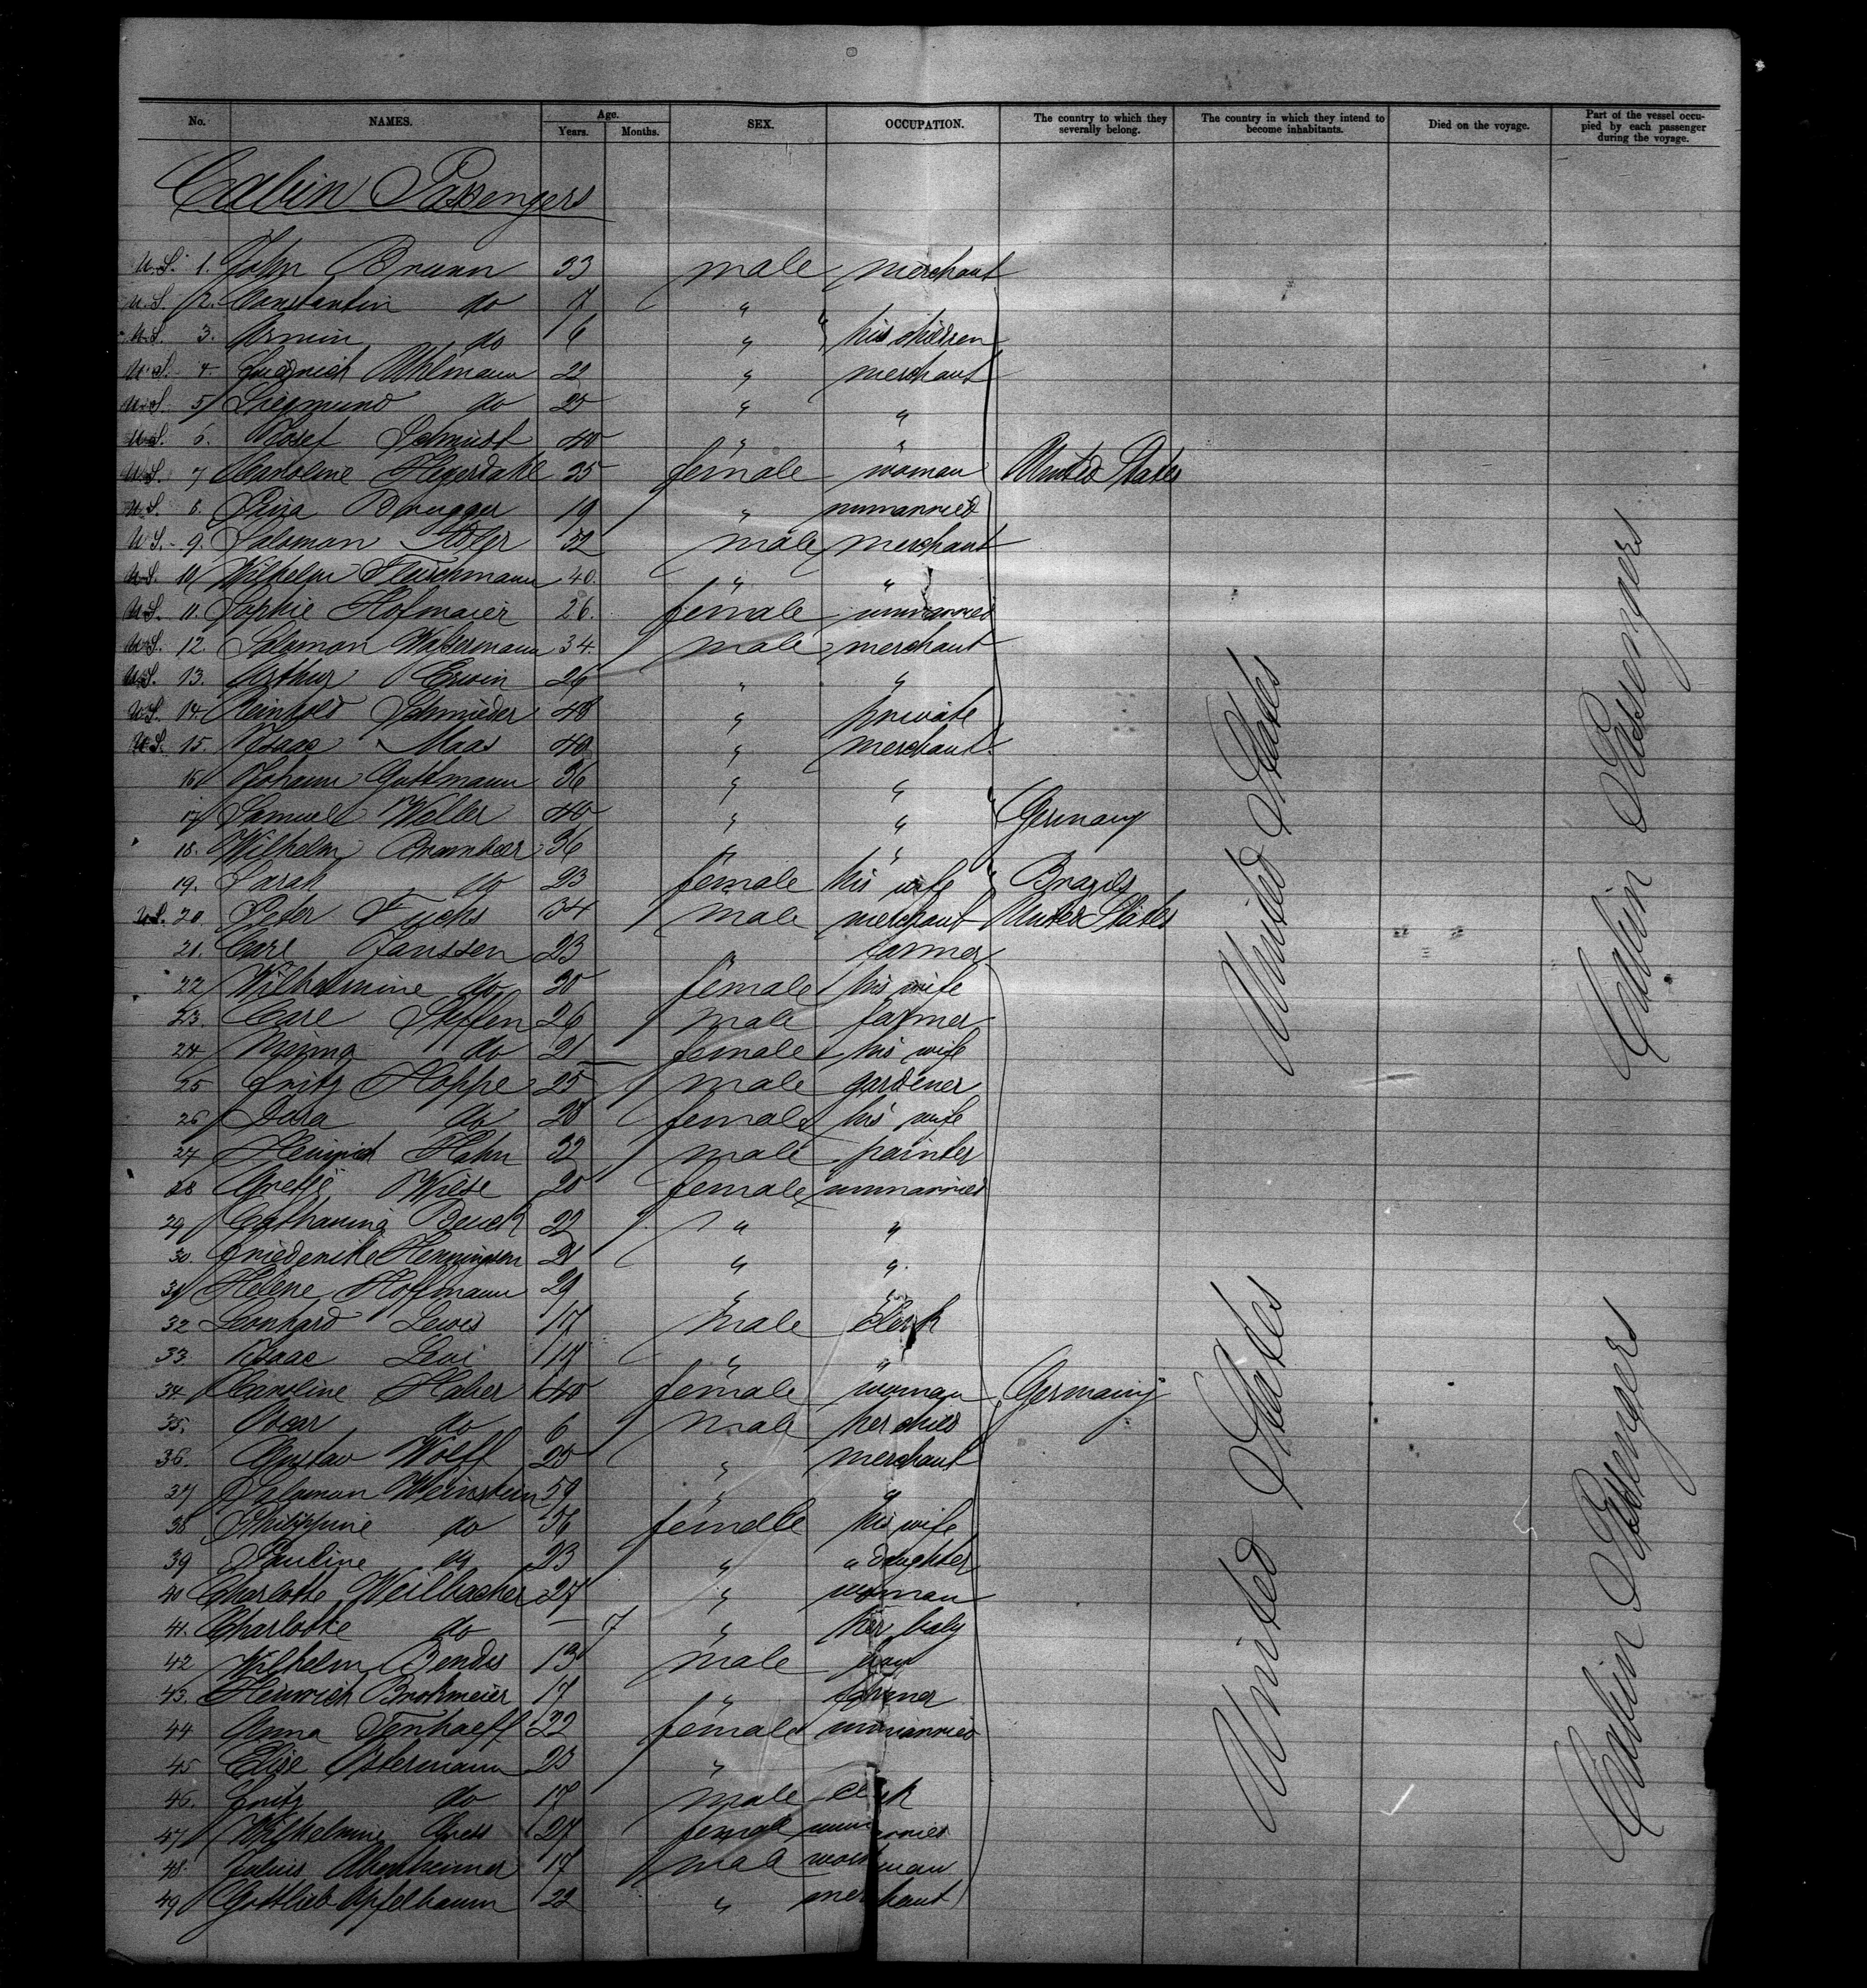 No. NAMES. Age. Years. Months. SEX. OCCUPATION. The country to which they severally belong. The country in which they intend to become inhabitants. Died on the voyage. Part of the vessel occupied by each passenger during the voyage.
Cabin Passengers
U.S. 1. John Brunn 33 male merchant
U.S. 2. Constantin do 7 "
U.S. 3. Armin do 6 " his children
U.S. 4. Friedrich Uhlmann 22 " merchant
U.S. 5 Siegmund do 25 " "
U.S. 6. Josef Schmidt 40 " "
U.S. 7 Caroline Hegerdahl 35 female woman United States
U.S. 8. Brugger 19 " unmarried
U.S. 9. Salomon Adler 32 male merchant
U.S. 10 Wilhelm Fleischmann 40. " "
U.S. 11. Sophie Hofmaier 26. female unmarried
U.S. 12. Salomon Wassermann 34. male merchant
U.S. 13. Arthur Erwin 26 " "
U.S. 14. Reinhold Schmieder 48 " private
U.S. 15. Isaac Maas 49 " merchant
16 Johann Guttmann 36 " "
17 Samuel Weller 40 " " Germany
18. Wilhelm 36 " "
19. Sarah do 23 female his wife Brazils
U.S. 20. Peter Fuchs 34 male merchant United States
21. Carl Janssen 23 " farmer
22 Wilhelmine do 20 female his wife
23. Carl Steffen 26 male farmer
24 do 21 female his wife
25 Fritz Hoppe 25 male gardener
26 Dora do 28 female his wife
27 Heinrich Hahn 32 male painter
28 Wiese 20 female unmarried
29 Catharina Beuck 22 " "
30. Friederike Henningsen 21 " "
31 Helene Hoffmann 29 " "
32 Leonhard Lewis 17 male clerk
33. Isaac Levi 17 " "
34 Caroline Haber 40 female woman Germany
35. Oscar do 6 male her child
36. Gustav Wolff 20 " merchant
37 Salomon Weinstein 59 " "
38 Philippine do 56 female his wife
39 Pauline do 23 " " daughter
40 Charlotte Weilbacher 27 " woman
41. Charlotte do — 7 " her baby
42 Wilhelm Bendes 13 male
43. Heinrich Brohmeier 17 " farmer
44 Anna Tenhaeff 22 female unmarried
45 Elise Ostermann 23 "
46. Fritz do 17 male clerk
47 Wilhelmine 27 female unmarried
48. Julius Abenheimer 17 male workman
49 Gottlieb Apfelbaum 22 " merchant
United States
United States
Cabin Passengers
Cabin Passengers